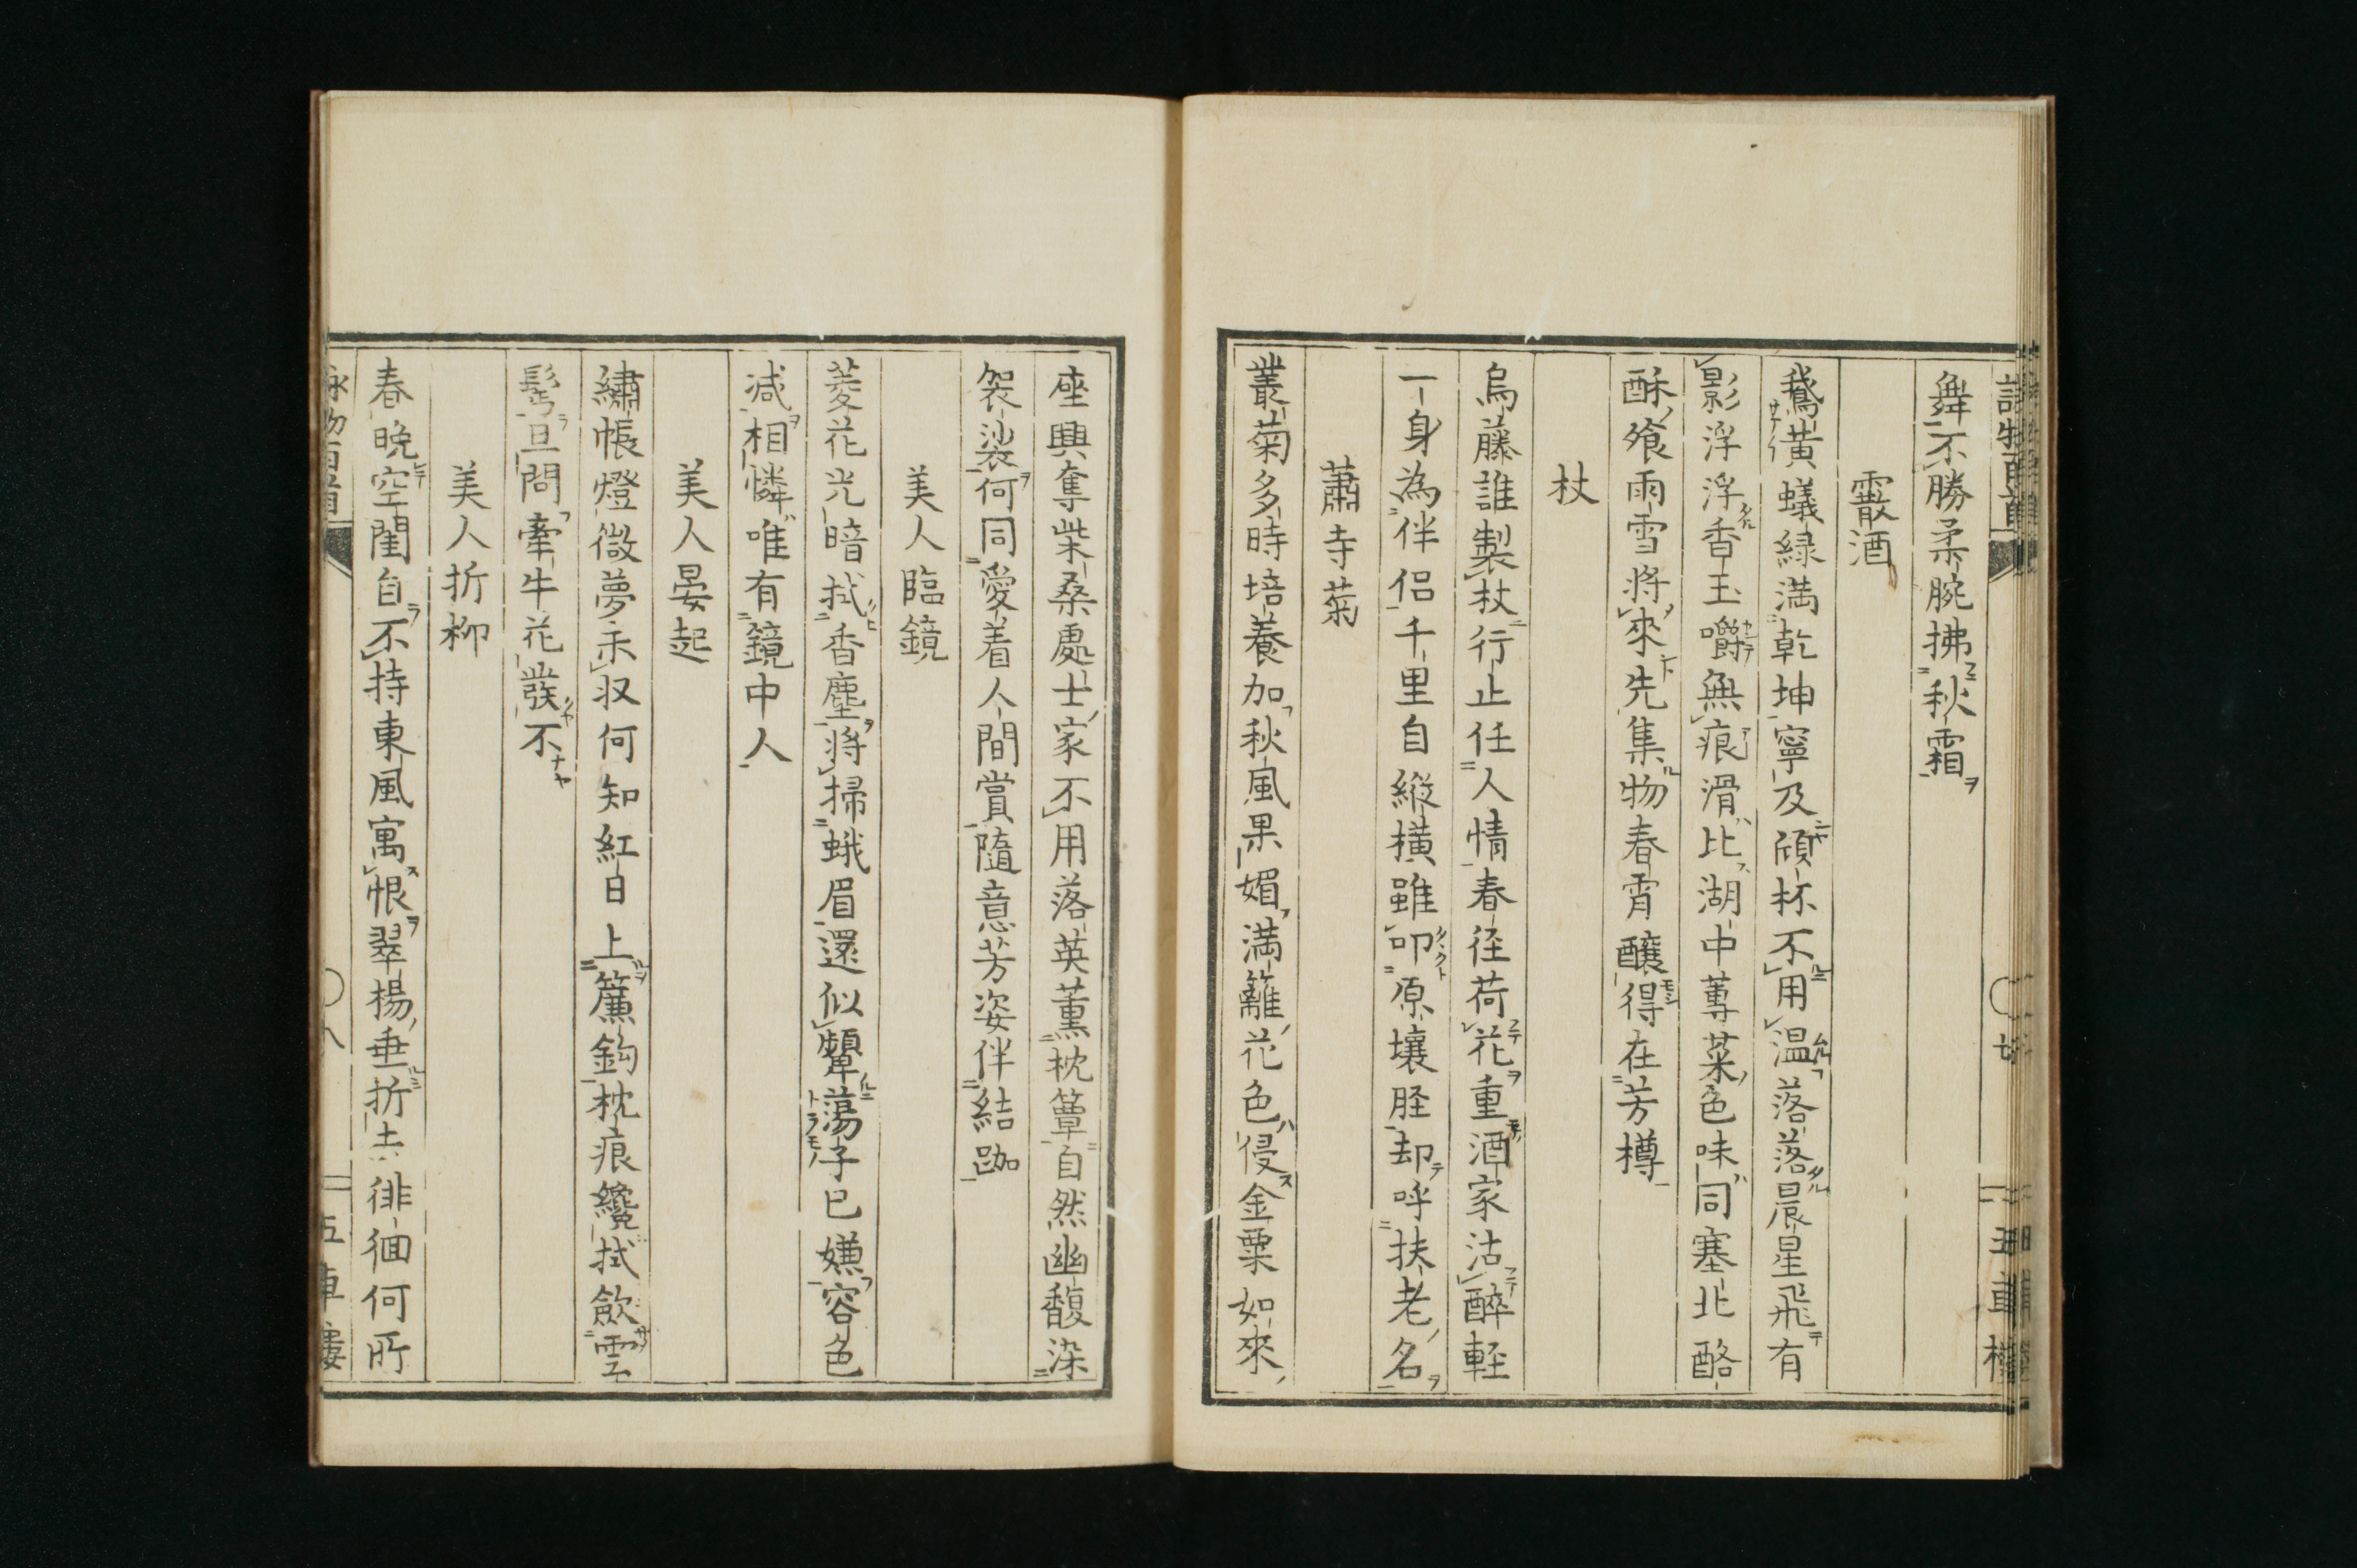 舞不勝柔腕拂秋霜
霰酒
鵞黄蟻緑満乾坤寧及頎杯不用温落落晨星飛有
影浮浮香玉嚼無痕滑比湖中蓴菜色味同塞北酪
酥飧雨雪將來先集物春霄醸得在芳樽
杖
烏藤誰製杖行止任人情春径荷花重酒家沽醉軽
一身為伴侶千里自縦横雖叩原壌脛却呼扶老名
蕭寺菊
叢菊多時培養加秋風果媚満籬花色侵金粟如來
座興奪柴桑處士家不用落英薫枕簟自然幽馥染
袈裟何同愛着人間賞隨意芳姿伴結跏
美人臨鏡
菱花光暗拭香塵將掃蛾眉還似顰蕩子已嫌容色
减相憐唯有鏡中人
美人晏起
繡帳燈微夢未収何知紅日上簾鈎枕痕纔拭欹雲
髩且問牽牛花發不
美人折柳
春晩空閨自不持東風寓恨翠楊垂折去徘徊何所
詠物百首
〇八
五車樓